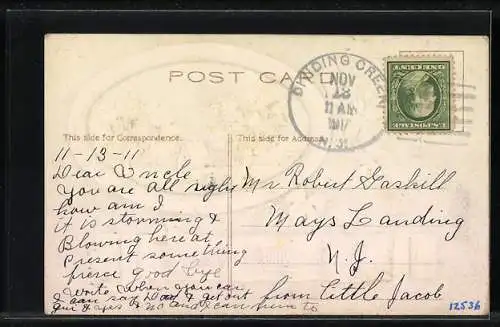 POST CA
DIVIDING CREEK
NOV
13
11 AM
191
N.J.
U.S. POSTAGE
ONE CENT
This side for Correspondence.
This side for Address.
11-13-11
Dear Uncle
You are all right
how am I
it is storming &
Blowing here at
Present something
fierce Good bye
Write when you can
I can say Dad & get out
& yes & no and I can
from Little Jacob
Mr Robert Gaskill
Mays Landing
N.J.
12536